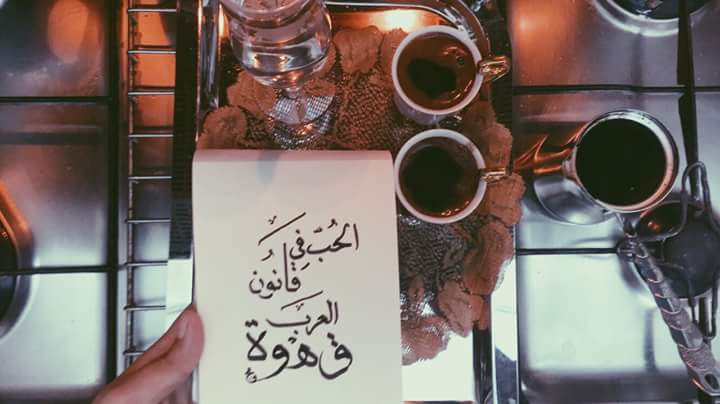 الحُبّ في
قانُون
العرب
قهوة